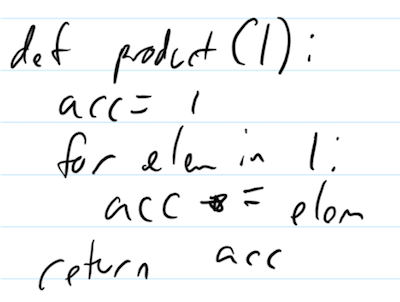 def product(l):
acc = 1
for elem in l:
acc *= elem
return acc